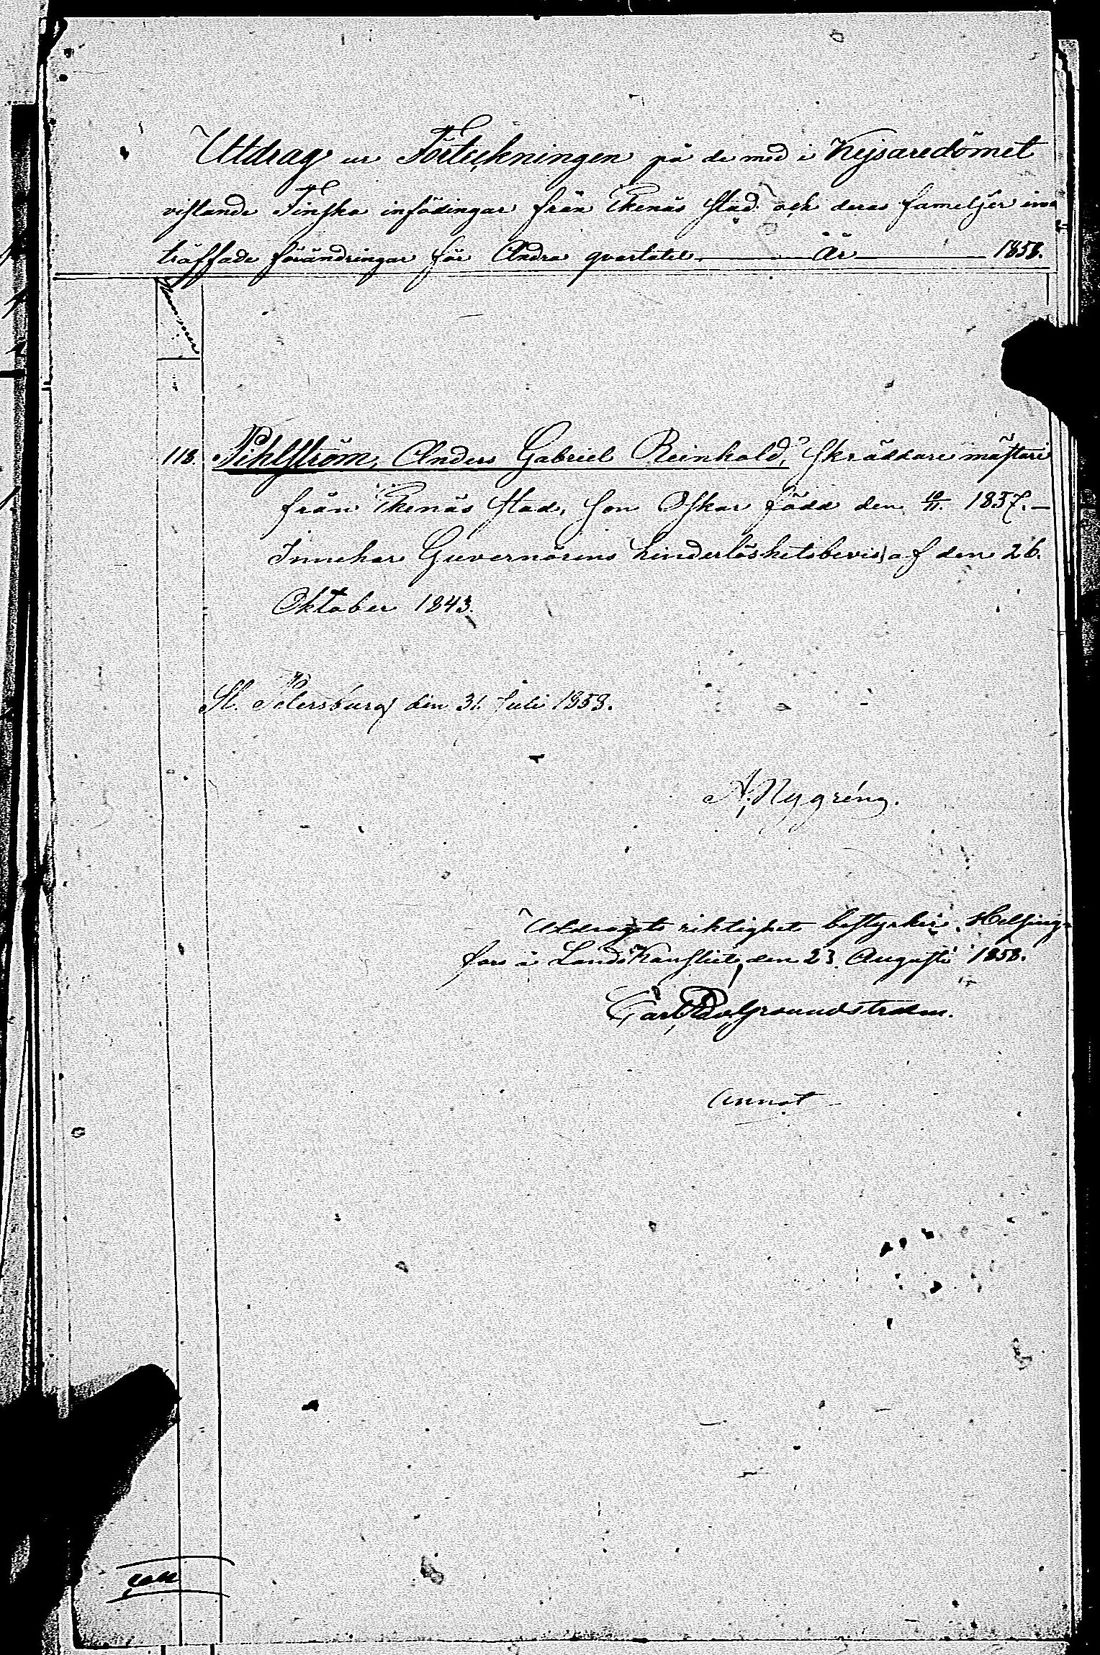 Utdrag ur Förteckningen på de med i Kejsaredömet
vistande Finska infödingar från Ekenäs stad och deras familjer in
träffade förändringar för Andra qvartalet År 1858.
Nummer
118. Pihlström, Anders Gabriel Reinhold, Skräddaremästare
från Ekenäs stad, son Oskar född den 1857.
Innehar Guvernörens hinderlöshetsbevis af den 26.
Oktober 1843.
St. Petersburg den 31. Juli 1858.
A. Nygréng.
Utdragets riktighet bestyrker. Helsing-
fors å LandsKansliet, den 23. Augusti 1858.
Carl Groundstroem.
Annot